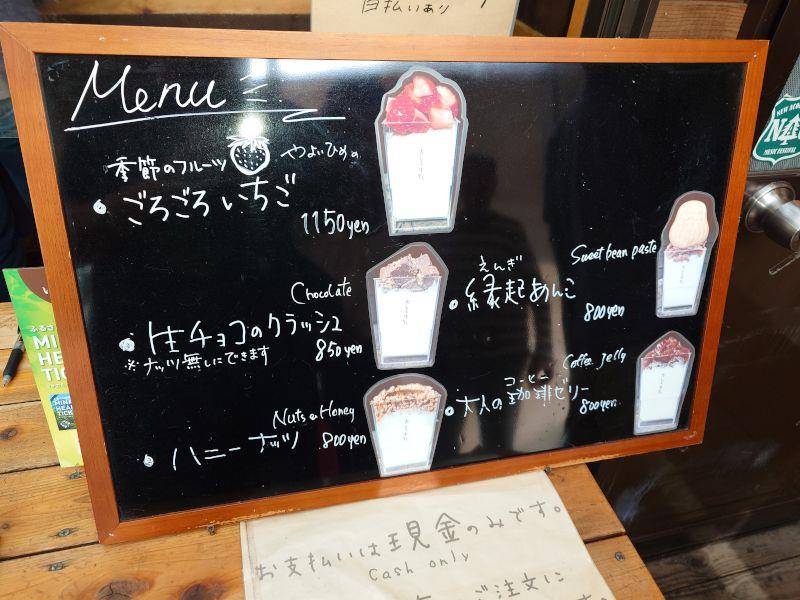 自払いあり
Menu
季節のフルーツ やよいひめ
ごろごろいちご
1150yen
Chocolate
生チョコのクラッシュ
850yen
※ナッツ無しにできます
Nuts & Honey
ハニーナッツ 800yen
Sweet bean paste
えんぎ
縁起あんこ
800yen
Coffee Jelly
コーヒー
大人の珈琲ゼリー
800yen
ふるさ
MIN
HE
TIC
NEW ACO
MUSIC FESTIVAL
お支払いは現金のみです。
Cash only
ご注文に